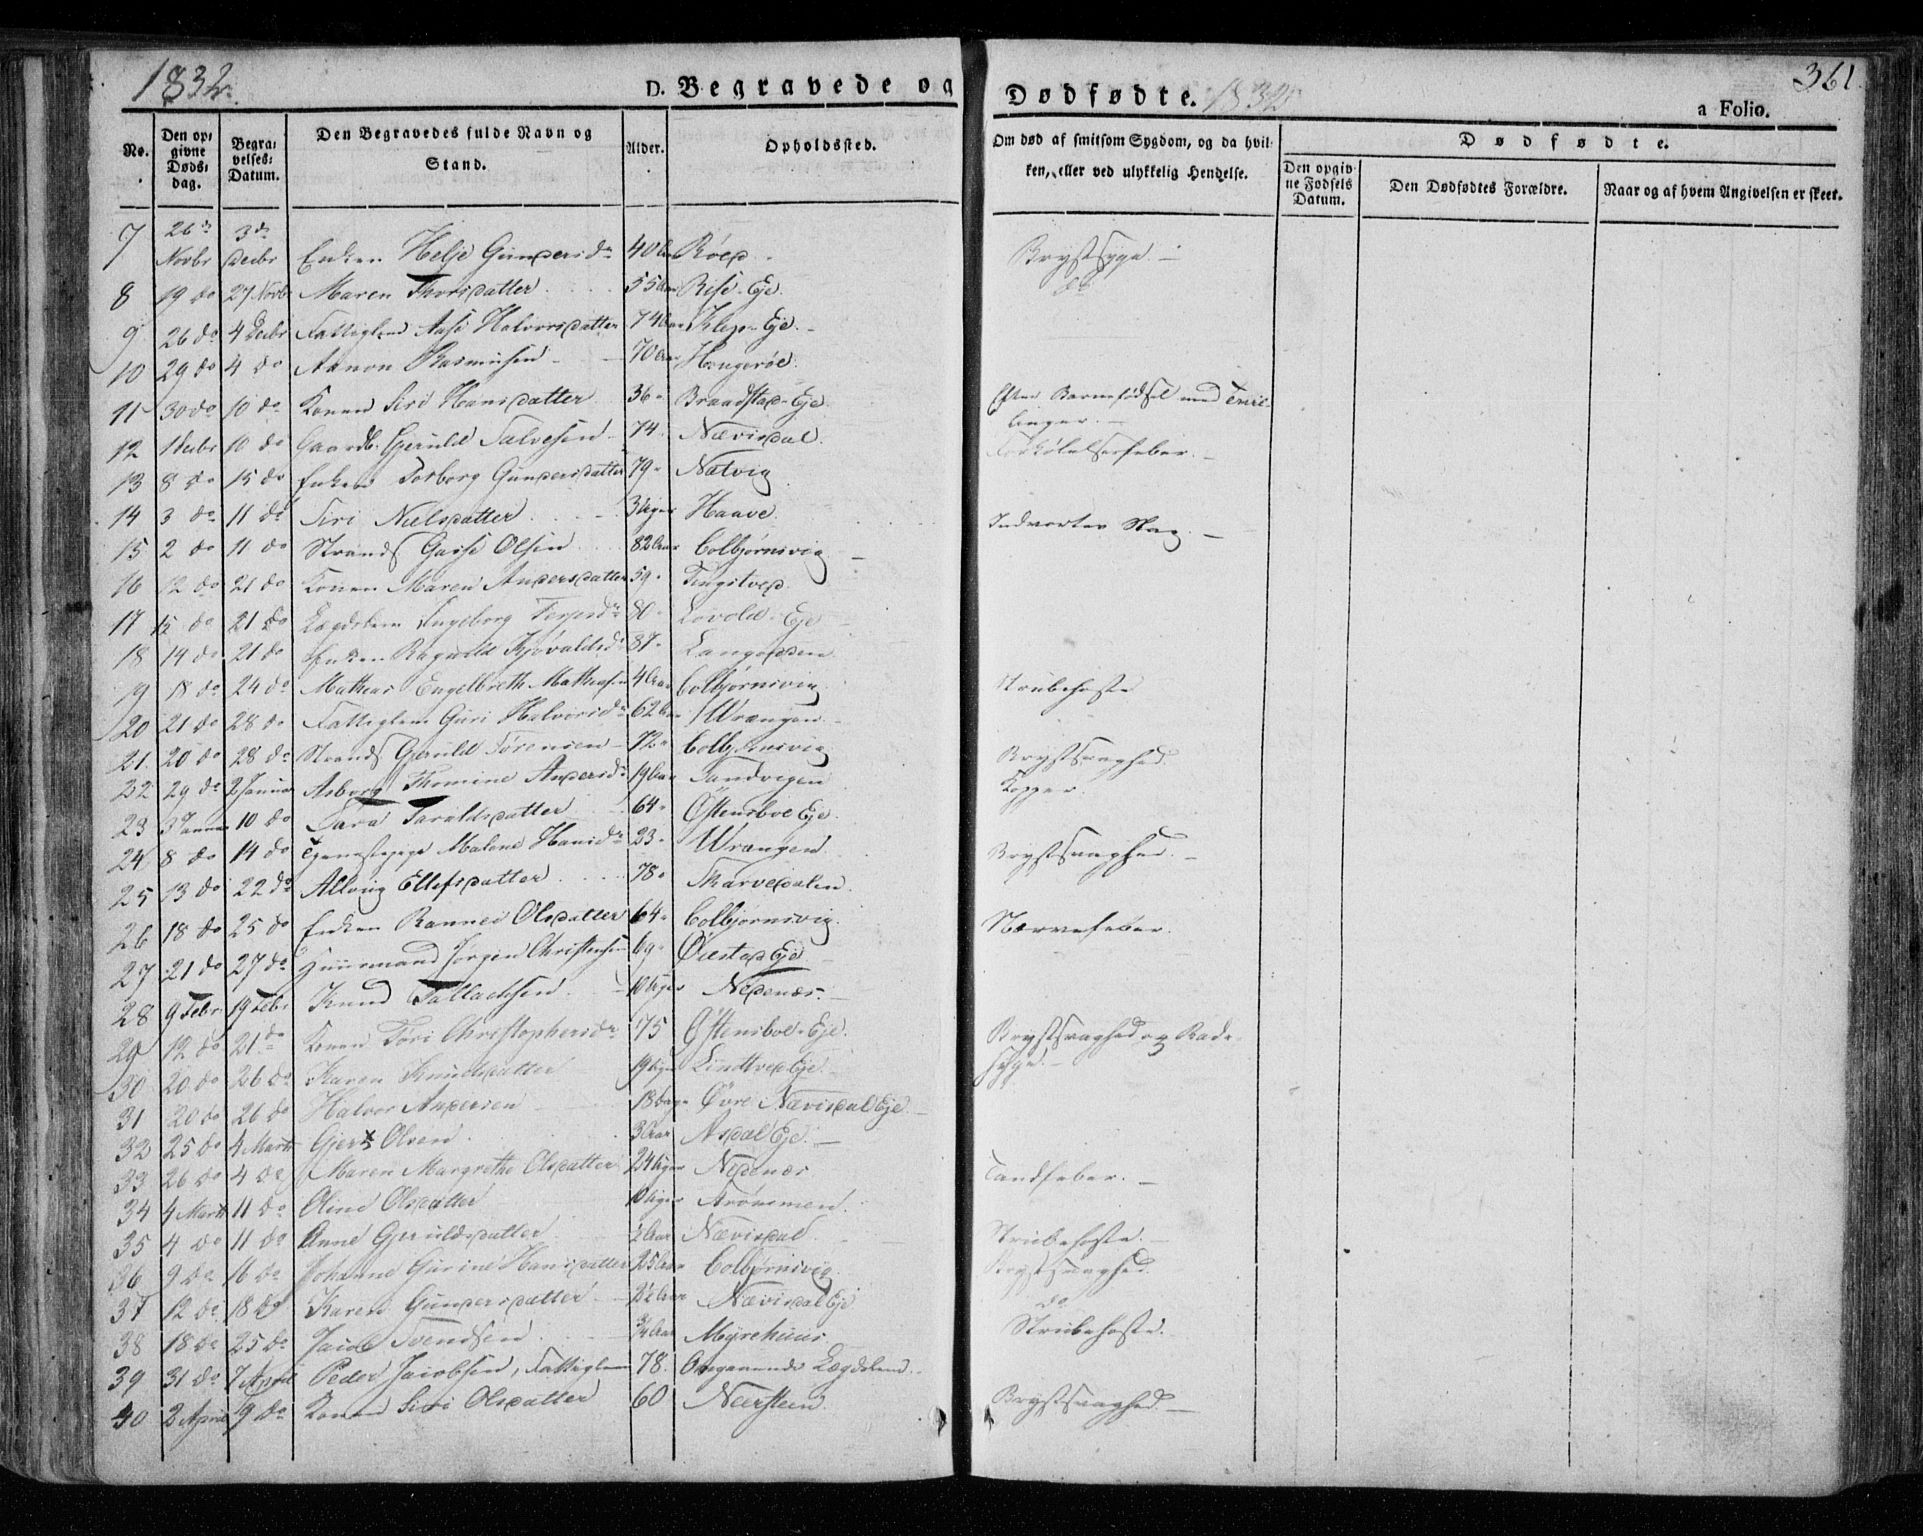 1832.
D. Begravede og
Dødfødte. 1832
361
a Folio.
No.
Den opgivne Dødsdag.
Begravelses-Datum.
Den Begravedes fulde Navn og Stand.
Alder.
Opholdssted.
Om død af smitsom Sygdom, og da hvilken, eller ved ulykkelig Hendelse.
Dødfødte.
Den opgivne Fødsels Datum.
Den Dødfødtes Forældre.
Naar og af hvem Angivelsen er skeet.
7 26de Novbr 3de Decbr Enken Helje Gundersdr 40 Aar Røed Brystsyge.
8 19 do 27 Novbr Maren Thorsdatter 55 Aar Rise-Eje. do
9 26 do 4 Decbr Fattiglem Aase Halvorsdatter 74 Aar Klep-Eje.
10 29 do 4 do Aanon Rasmusen 70 Aar
11 30 do 10 do Konen Siri Hansdatter 36 " Braadstad-Eje. Efter Barnefødsel med Tvillinger.
12 1 Decbr 10 do Gaardb. Gjeruld Salvesen 74 Nævisdal. Forkølelsesfeber.
13 8 do 15 do Enken Torborg Gundersdatter 79 " Natvig
14 3 do 11 do Siri Nielsdatter 3 Uger Haave.
15 2 do 11 do Strands. Olsen 82 Aar Colbjørnsvig Indvortes Slag.
16 12 do 21 do Konen Maren Andersdatter 59 " Tingstved
17 15 do 21 do Lægdslem Ingeborg Terjesdr 80 " Lovold-Eje
18 14 do 21 do Enken Ragnild 87 "
19 18 do 24 do Mathias Engelbreth Mathiasen 4 Aar Colbjørnsvig Strubehoste
20 21 do 28 do Fattiglem Guri Halvorsdr 62 Aar Wrængen
21 20 do 28 do Strands. Gjeruld Sørensen 72 " Colbjørnsvig Brystsvaghed.
22 29 do 2 Januar Asborg Thomine Andersdr 19 Aar Sandvigen Kopper.
23 3 Januar 10 do Sara Taraldsdatter 64 " Østensboe Eje.
24 8 do 14 do Tjenestepige Malene Hansdr 23 " Wrængen Brystsvaghed.
25 13 do 22 do Allvig Ellefsdatter 78 " Skarvedalen.
26 18 do 25 do Enken Olsdatter 64 " Colbjørnsvig. Nervefeber.
27 21 do 27 do Huusmand Jørgen Christensen 69 " Øiestad Eje
28 9 Febr 19 Febr Knud Tallachsen 10 Uger Nedenæs.
29 12 do 21 do Konen Tøri Christophersdr 75 Østensboe-Eje. Brystsvaghed og Radesyge.
30 20 do 26 do Karen Knudsdatter 19 Uger Lindtved Eje.
31 20 do 26 do Halvor Andersen 18 Dage Øvre Nævisdal Eje.
32 25 do 4 Marts Gjert Olsen 3 Aar Asdal Eje.
33 26 do 4 do Maren Margrethe Olsdatter 24 Uger Nedenæs Tandfeber.
34 4 Marts 11 do Oline Olsdatter 10 Uger Strømmen.
35 4 do 11 do Anne Gjeruldsdatter ½ Aar Nævisdal. Strubehoste.
36 9 do 16 do Johanne Gurine Hansdatter 25 Aar Colbjørnsvig. Brystsvaghed.
37 12 do 18 do Karen Gundersdatter Aar Nævisdal Eje. do
38 18 do 25 do Svendsen ¾ Aar Myrehuus Strubehoste.
39 31 do 7 April Peder Jacobsen, Fattiglem 78. Omgaaende Lægdslem
40 2 April 9 do Konen Siri Olsdatter 60 Neersteen Brystsvaghed